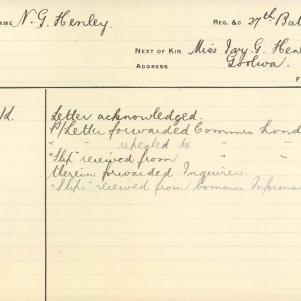 NAME N. G. Henley. REG. &c 27th Bat
NEXT OF KIN Miss Ivy. G. Hen
ADDRESS Goolwa.
/d. Letter acknowledged.
P/Letter forwarded Commrs Lond
" " repeated to " "
"Slip" received from " "
therein forwarded Inquirer.
"Slips" received from Commrs Informa